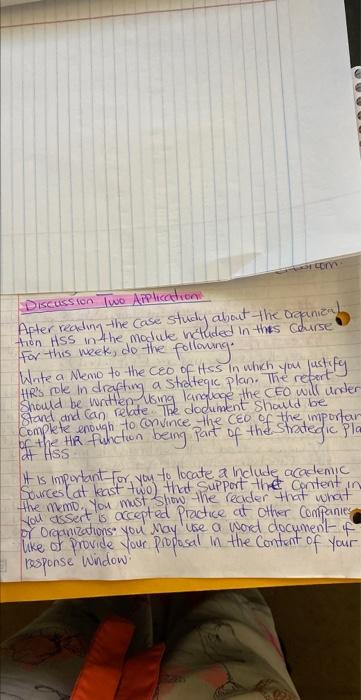 Discussion Two Application
After reading the case study about the Organiza
tion HSS in the module included in this Course
for this week, do the following.
Write a Memo to the CEO of HSS in which you justify
HR's role in drafting a strategic plan. The report
Should be written using language the CEO will under
Stand and can relate. The document Should be
Complete enough to convince the CEO of the importan
of the HR function being part of the Strategic Pla
at HSS
It is important for you to locate & include academic
Sources (at least two) that Support the Content in
the memo. You must show the reader that what
you assert is accepted Practice at other Companies
or Organizations. you May use a word document if
like or provide your Proposal in the Content of your
response window.